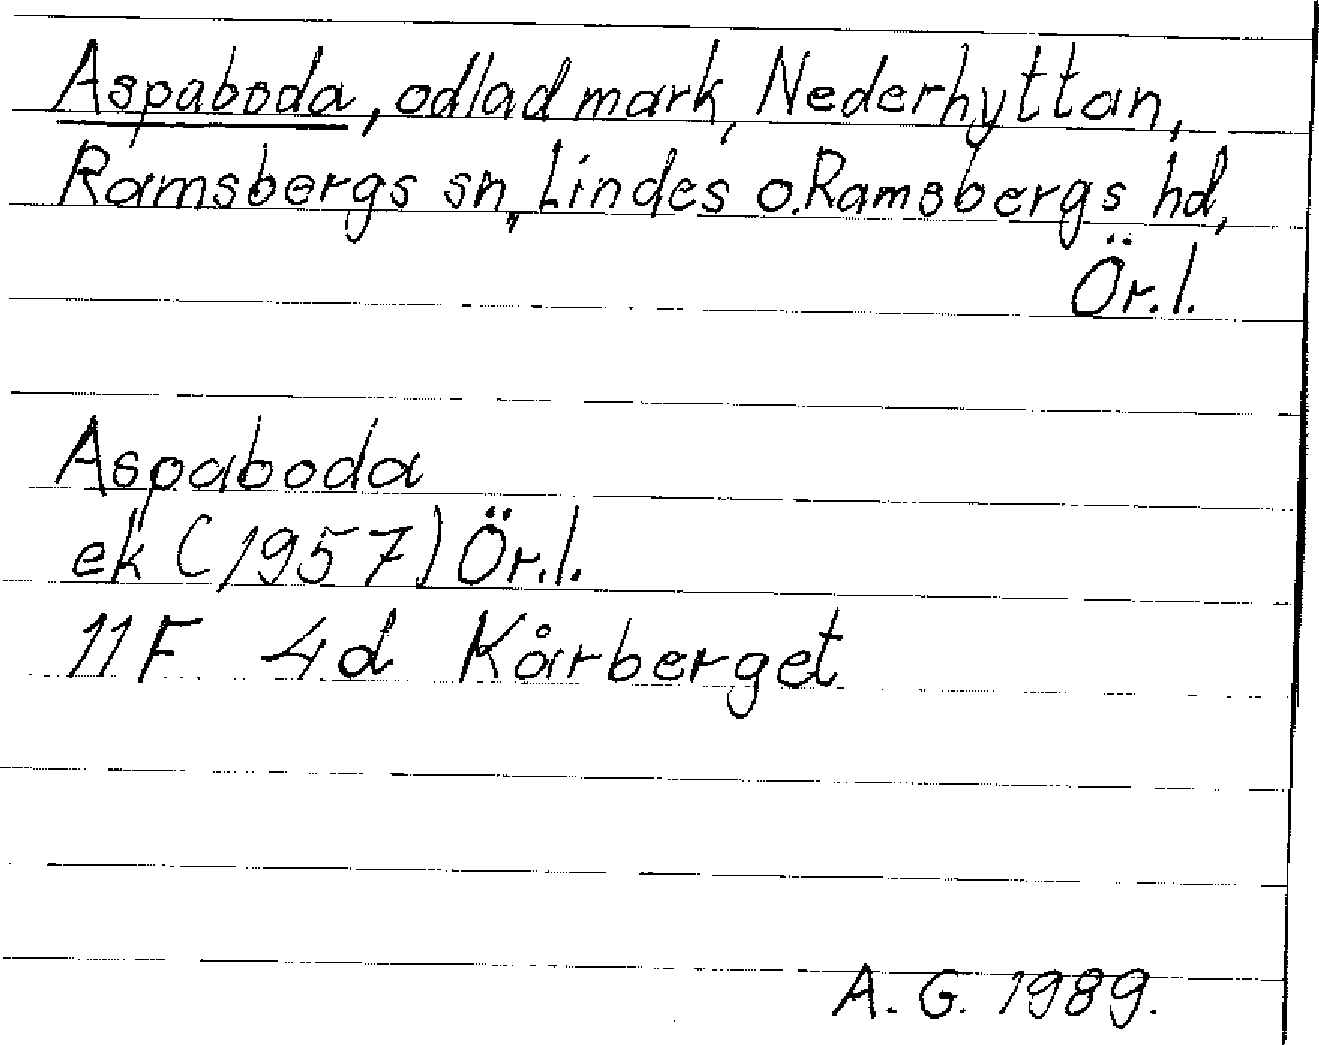 Aspaboda, odlad mark, Nederhyttan,
Ramsbergs sn, Lindes o. Ramsbergs hd,
Ör. l.
Aspaboda
ek (1957) Ör. l.
11F 4d Kårberget
A. G. 1989.